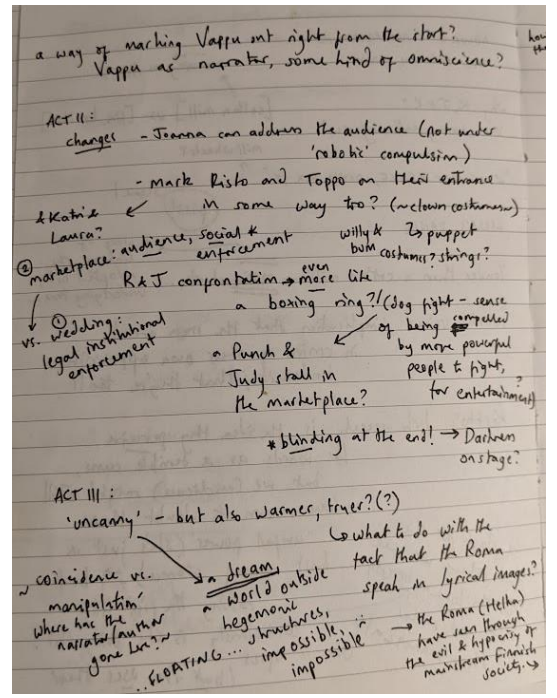 a way of marking Vappu out right from the start?
Vappu as narrator, some kind of omniscience?
how
ACT II:
changes - Joanna can address the audience (not under
'robotic' compulsion)
- mark Risto and Toppo on their entrance
in some way too? (~clown costumes~)
& Katri &
Laura?
willy &
bum
costumes?
↳ puppet
strings?
② marketplace: audience, social *
enforcement
R & J confrontation → even
more like
a boxing ring?! (dog fight - sense
of being compelled
by more powerful
people to fight,
for entertainment)?
vs. ① wedding:
legal institutional
enforcement
a Punch &
Judy stall in
the marketplace?
* blinding at the end! → Darken
onstage?
ACT III:
'uncanny' - but also warmer, truer?(?)
↳ what to do with the
fact that the Roma
speak in lyrical images?
~ coincidence vs.
manipulation
where has the
narrator/author
gone here? ~
a dream
a world outside
hegemonic
structures,
impossible, ~
impossible
..FLOATING...
→ the Roma (Helka)
have seen through
the evil & hypocrisy of
mainstream Finnish
society.